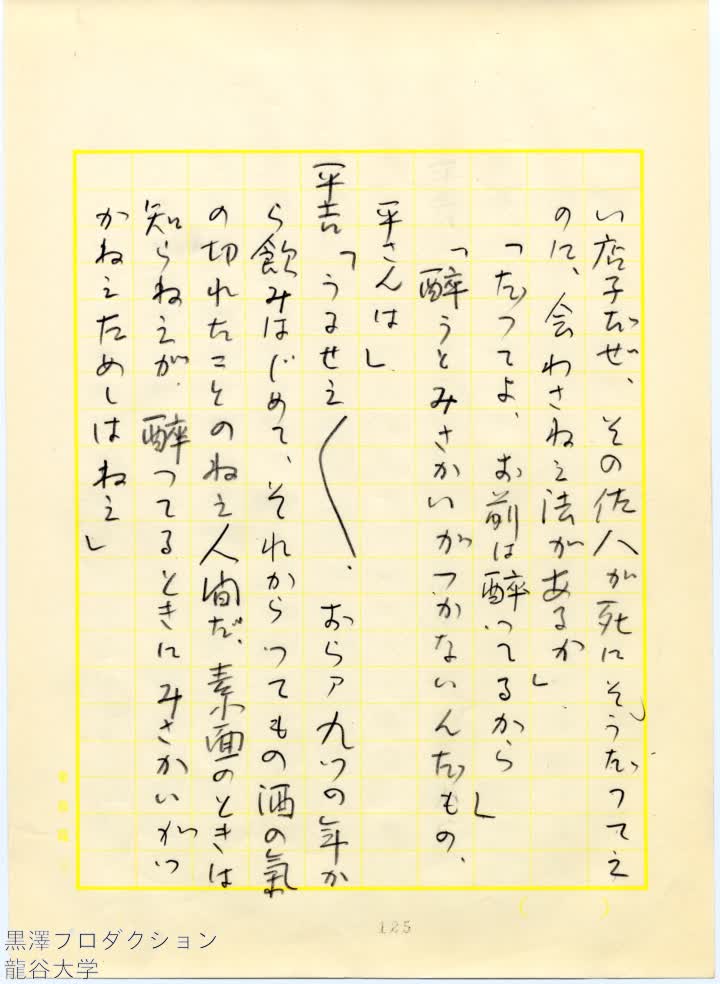 い店子だぜ、その佐八が死にそうだってえ
のに、会わさねえ法があるか」
「だってよ、お前は醉ってるから」
「醉うとみさかいがつかないんだもの、
平さんは」
平吉「うるせえ〳〵、おらァ九つの年か
ら飲みはじめて、それからってもの酒の氣
の切れたことのねえ人間だ、素面のときは
知らねえが、醉ってるときにみさかいがつ
かねえためしはねえ」
125
黒澤プロダクション
龍谷大学